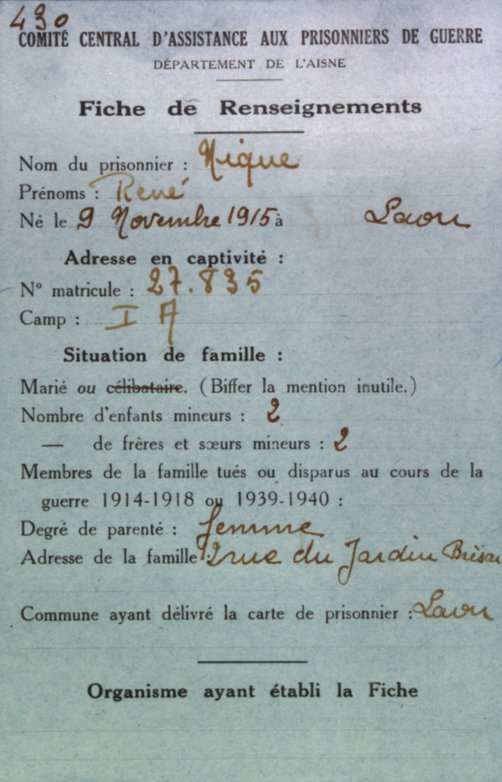 430
COMITÉ CENTRAL D'ASSISTANCE AUX PRISONNIERS DE GUERRE
DÉPARTEMENT DE L'AISNE
Fiche de Renseignements
Nom du prisonnier : Nique
Prénoms : René
Né le 9 Novembre 1915 à Laon
Adresse en captivité :
N° matricule : 27.835
Camp : I A
Situation de famille :
Marié ou célibataire. (Biffer la mention inutile.)
Nombre d'enfants mineurs : 2
— de frères et sœurs mineurs : 2
Membres de la famille tués ou disparus au cours de la
guerre 1914-1918 ou 1939-1940 :
Degré de parenté : femme
Adresse de la famille : 2 rue du Jardin
Commune ayant délivré la carte de prisonnier : Laon
Organisme ayant établi la Fiche